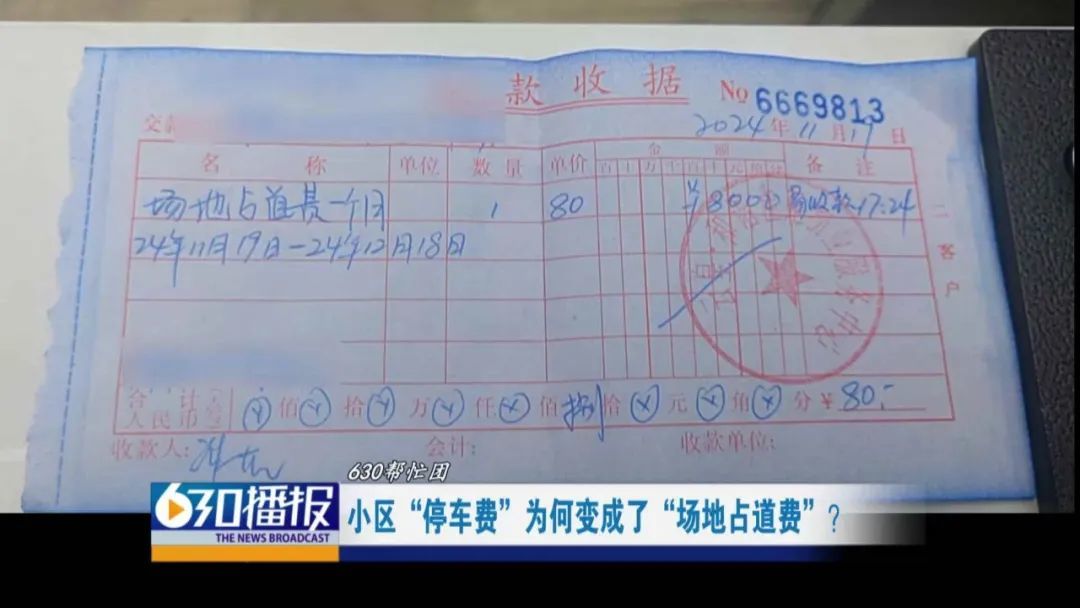 款收据
No 6669813
2024年11月19日
交款
名称 单位 数量 单价 金额 备注
百十万千百十元角分
场地占道费一个月 1 80 ¥8000 易收款17:24
24年11月19日－24年12月18日
服务中心
二客户
合计
人民币
佰 拾 万 仟 佰 捌拾 元 角 分 ¥80:
收款人: 会计: 收款单位:
630帮忙团
630播报
THE NEWS BROADCAST
小区“停车费”为何变成了“场地占道费”?